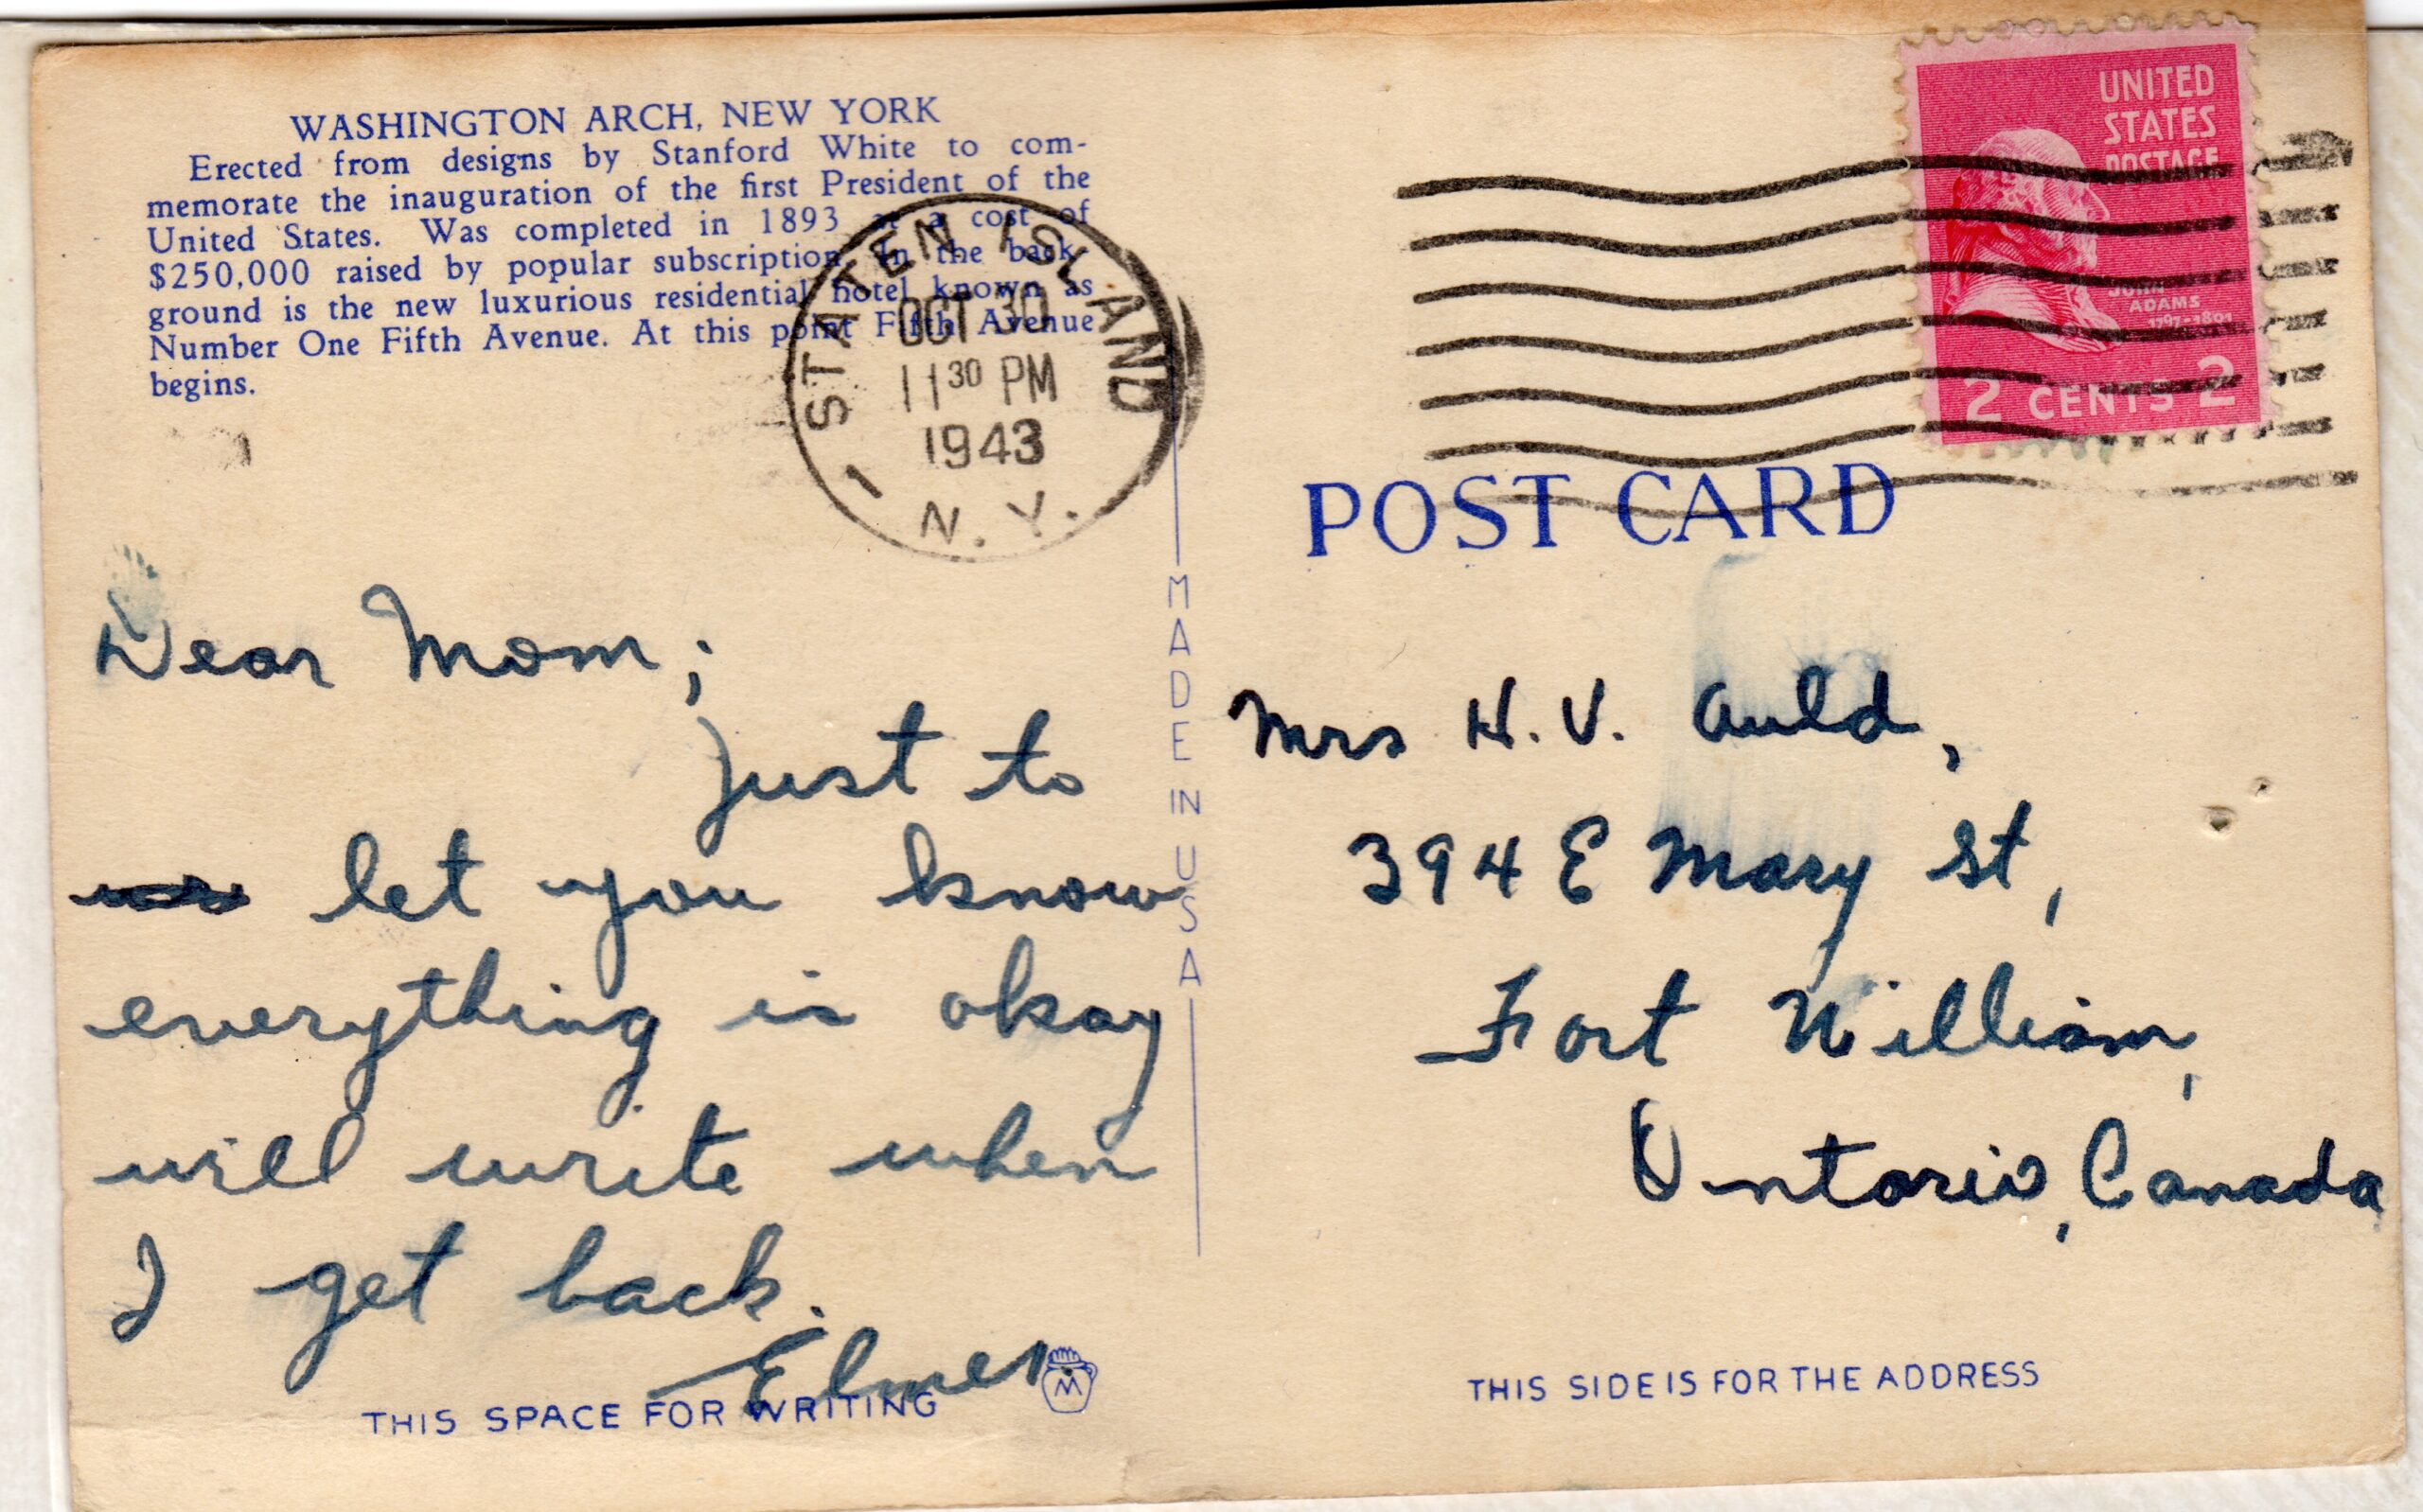 WASHINGTON ARCH, NEW YORK
Erected from designs by Stanford White to com-
memorate the inauguration of the first President of the
United States. Was completed in 1893 at a cost of
$250,000 raised by popular subscription. In the back-
ground is the new luxurious residential hotel known as
Number One Fifth Avenue. At this point Fifth Avenue
begins.
STATEN ISLAND
OCT 30
11 30 PM
1943
1
N. Y.
UNITED
STATES
POSTAGE
JOHN
ADAMS
1797-1801
2 CENTS 2
POST CARD
Dear Mom;
Just to
let you know
everything is okay
will write when
I get back.
Elmer
THIS SPACE FOR WRITING
M
MADE IN USA
Mrs H. V. Auld,
394 E Mary St,
Fort William,
Ontario, Canada
THIS SIDE IS FOR THE ADDRESS